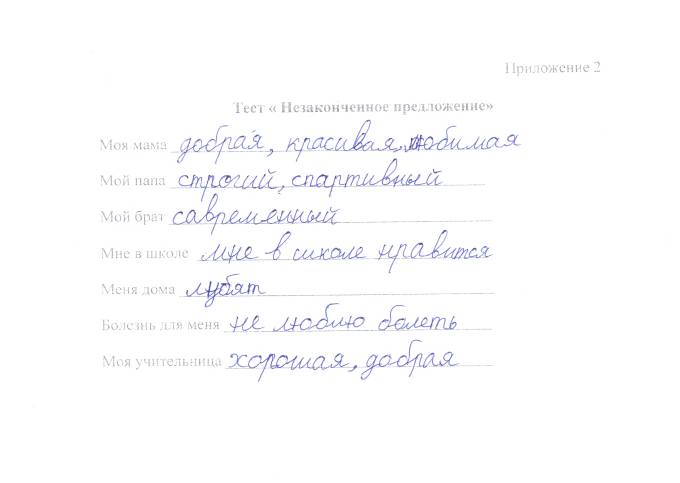 Приложение 2
Тест « Незаконченное предложение»
Моя мама добрая, красивая, любимая
Мой папа строгий, спартивный
Мой брат савременный
Мне в школе мне в школе нравится
Меня дома любят
Болезнь для меня не люблю болеть
Моя учительница хорошая, добрая